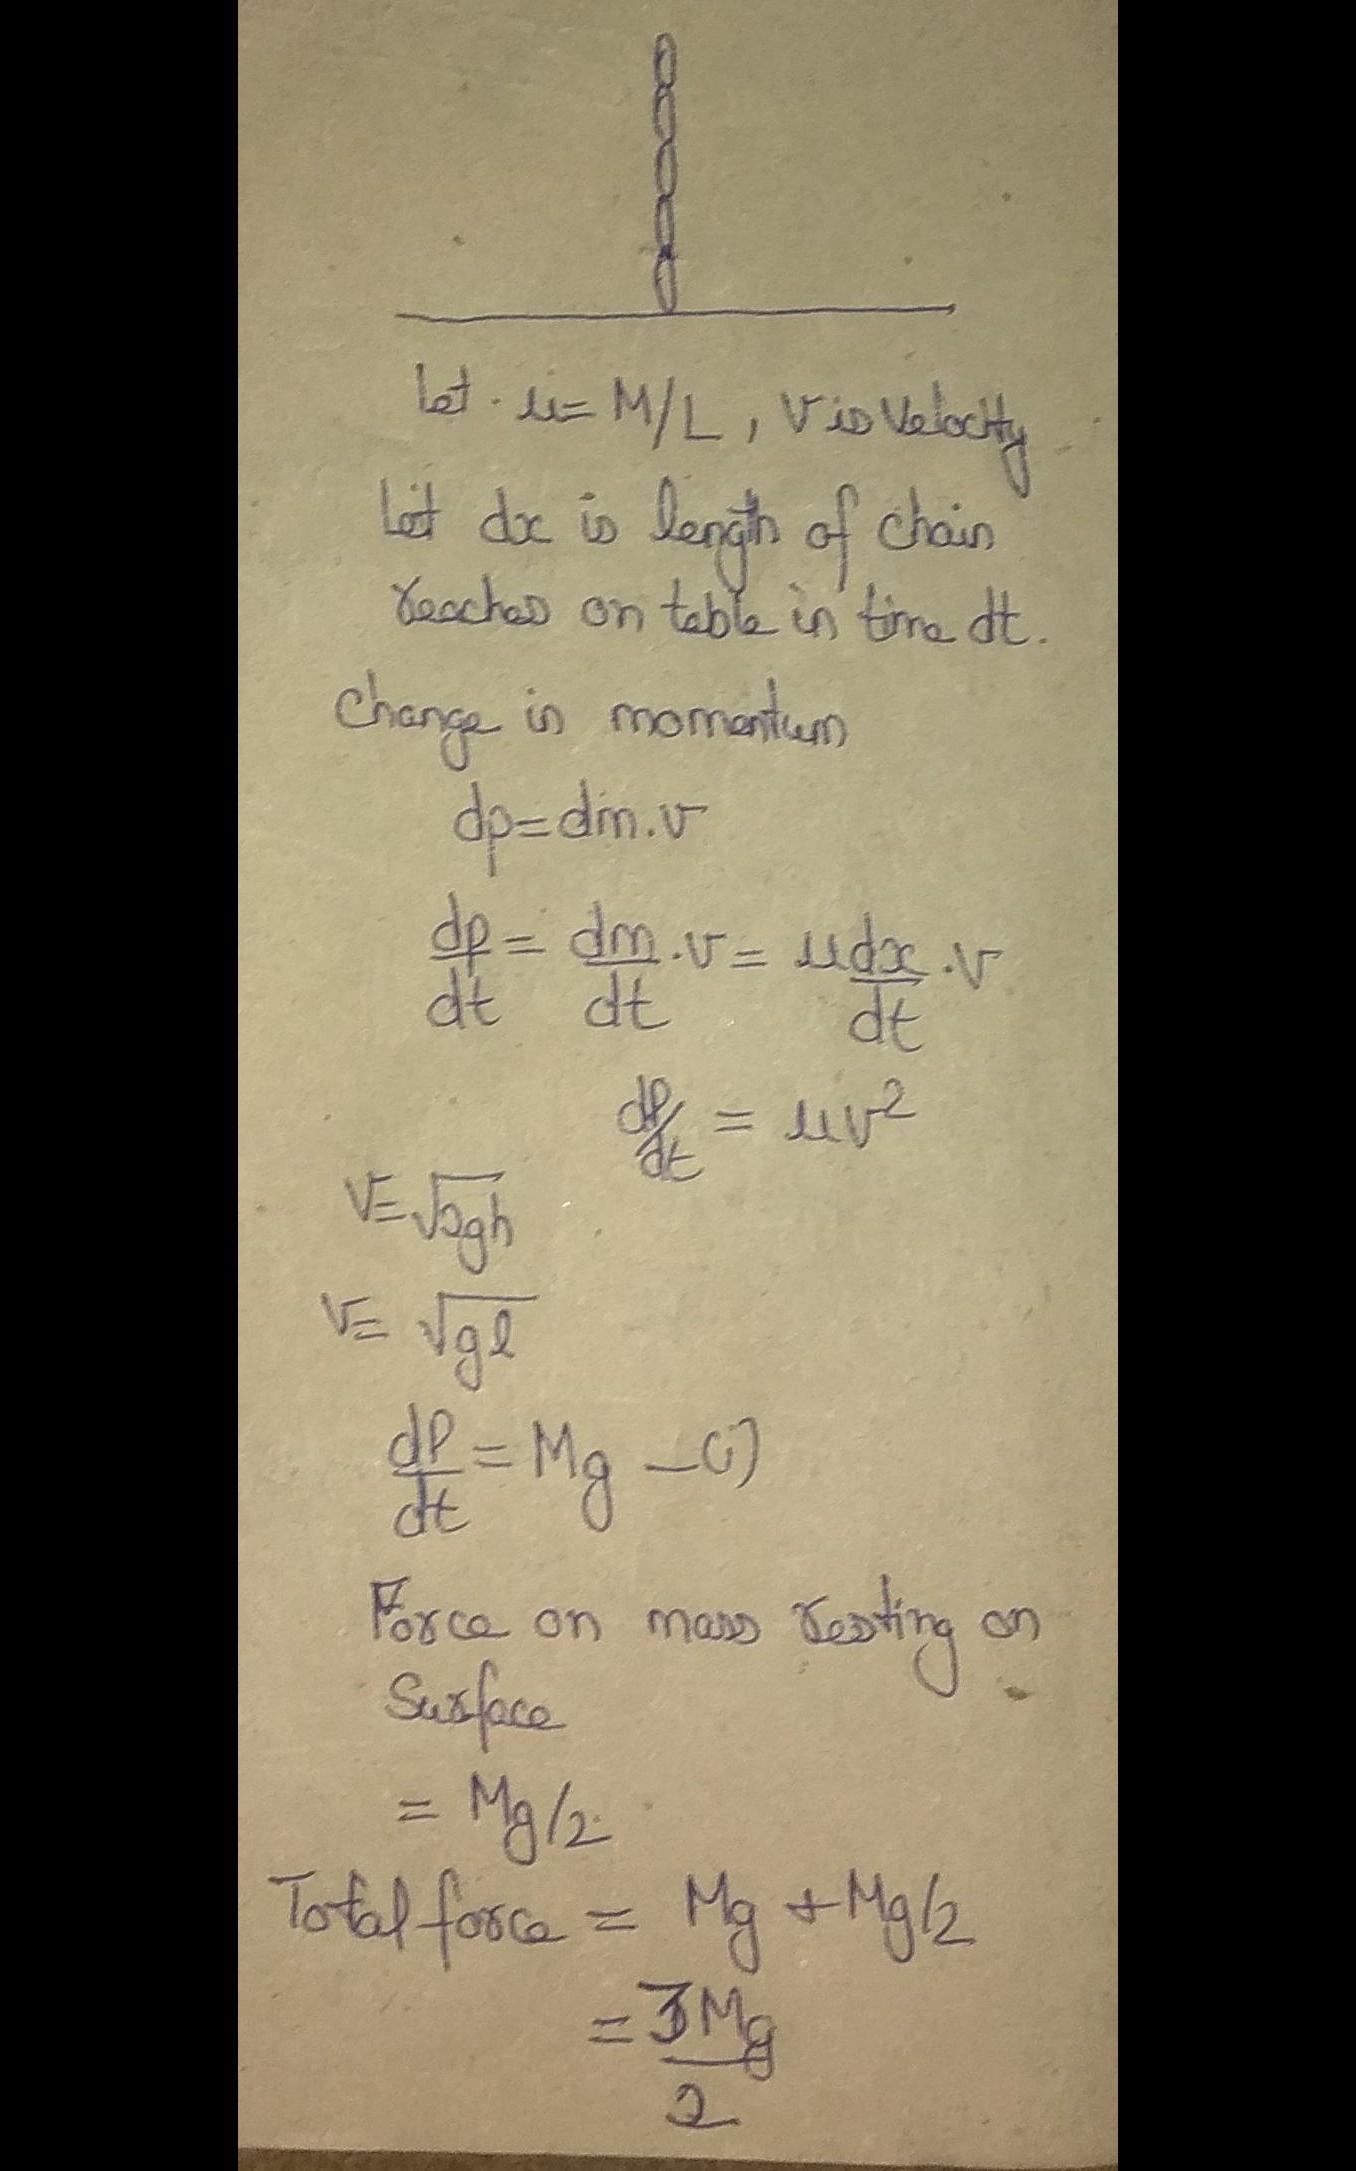 Let. μ= M/L, V is Velocity
Let dx is length of chain
reaches on table in time dt.
Change in momentum
dp=dm.v
dp/dt = dm/dt .v = μdx/dt .v
dp/dt = μv²
V=√2gh
V= √gl
dP/dt = Mg –(i)
Force on mass resting on
Surface
= Mg/2
Total force = Mg + Mg/2
= 3Mg/2